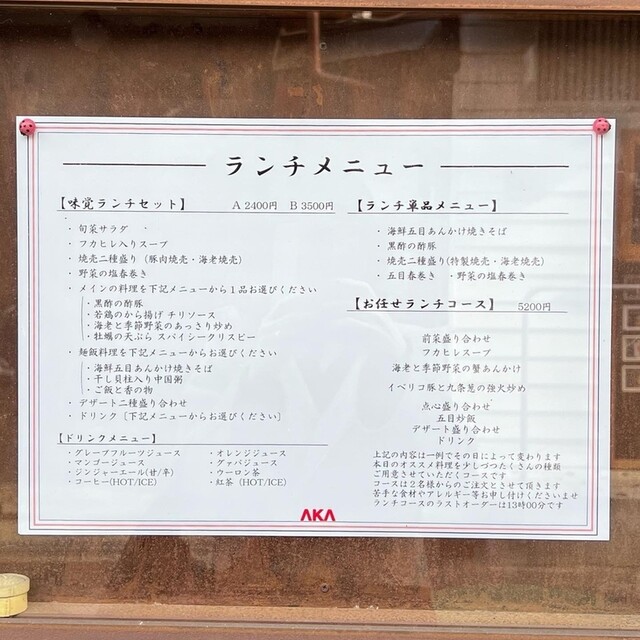 ランチメニュー
【味覚ランチセット】 A 2400円 B 3500円
・旬菜サラダ
・フカヒレ入りスープ
・焼売二種盛り（豚肉焼売・海老焼売）
・野菜の塩春巻き
・メインの料理を下記メニューから１品お選びください
・黒酢の酢豚
・若鶏のから揚げ チリソース
・海老と季節野菜のあっさり炒め
・牡蠣の天ぷら スパイシークリスピー
・麺飯料理を下記メニューからお選びください
・海鮮五目あんかけ焼きそば
・干し貝柱入り中国粥
・ご飯と香の物
・デザート二種盛り合わせ
・ドリンク［下記メニューからお選びください］
【ドリンクメニュー】
・グレープフルーツジュース ・オレンジジュース
・マンゴージュース ・グァバジュース
・ジンジャーエール(甘/辛) ・ウーロン茶
・コーヒー(HOT/ICE) ・紅茶（HOT/ICE)
【ランチ単品メニュー】
・海鮮五目あんかけ焼きそば
・黒酢の酢豚
・焼売二種盛り(特製焼売・海老焼売)
・五目春巻き ・野菜の塩春巻き
【お任せランチコース】 5200円
前菜盛り合わせ
フカヒレスープ
海老と季節野菜の蟹あんかけ
イベリコ豚と九条葱の強火炒め
点心盛り合わせ
五目炒飯
デザート盛り合わせ
ドリンク
上記の内容は一例でその日によって変わります
本日のオススメ料理を少しづつたくさんの種類
ご用意させていただくコースです
コースは２名様からのご注文とさせて頂きます
苦手な食材やアレルギー等お申し付けくださいませ
ランチコースのラストオーダーは13時00分です
AKA